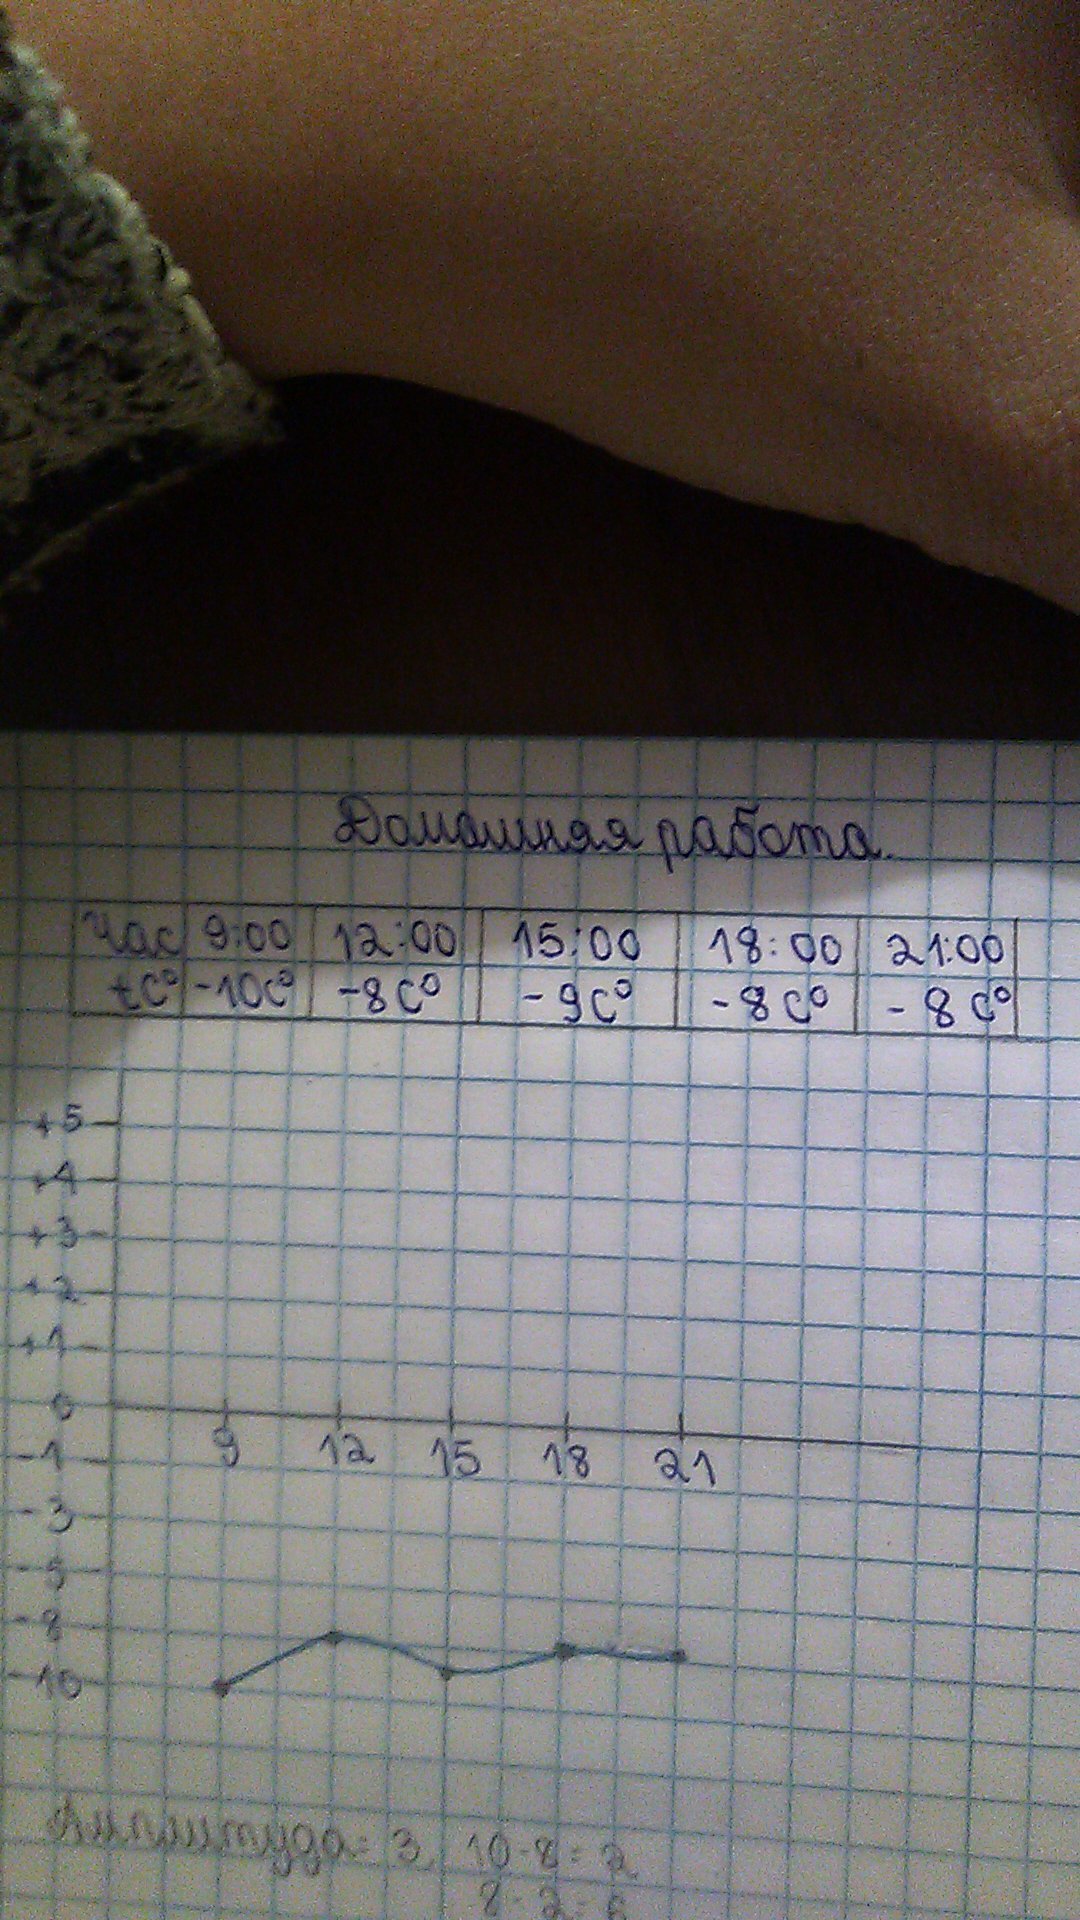 Домашняя работа.
Час 9:00 12:00 15:00 18:00 21:00
tC° -10C° -8C° -9C° -8C° -8C°
+5
+4
+3
+2
+1
0
9 12 15 18 21
-1
-3
-5
-8
-10
Амплитуда = 3, 10-8=2
8-2=6